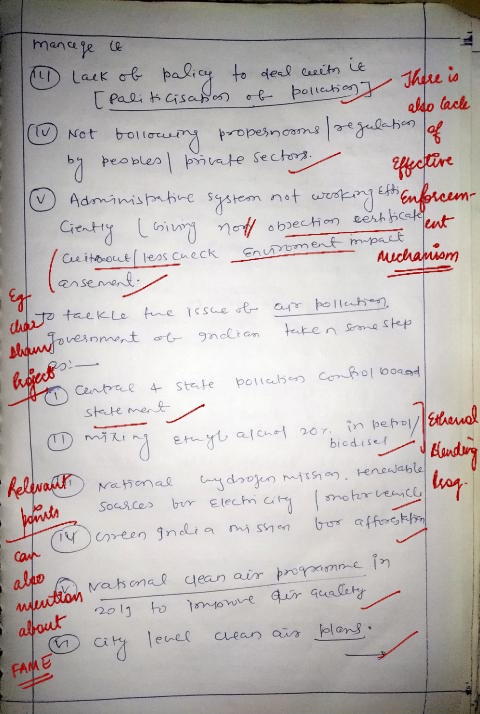 manage it
(iii) Lack of policy to deal with it
[Paliticisation of pollution]
There is
also lack
of
Effective
Enforcem-
ent
Mechanism
(iv) Not following propernorms/regulation
by peoples/private sectors.
(v) Administrative system not working effi
ciently (Giving no objection certificate
without/less check Enviroment impact
assement.
Eg
char
dham
Project
To tackle the issue of air pollution,
Government of Indian taken some step
as:—
(i) Central & state pollution control board
statement
(ii) mixing Ethyl alcohol 20% in petrol/
biodisel
Ethanol
Blending
Prog.
(iii) National hydrogen mission, renewable
sources for Electricity/motor vehicle
(iv) Green India mission for afforestation
Relevant
points
can
also
mention
about
FAME
(v) National clean air programme in
2019 to improve air quality
(vi) City level clean air plans.